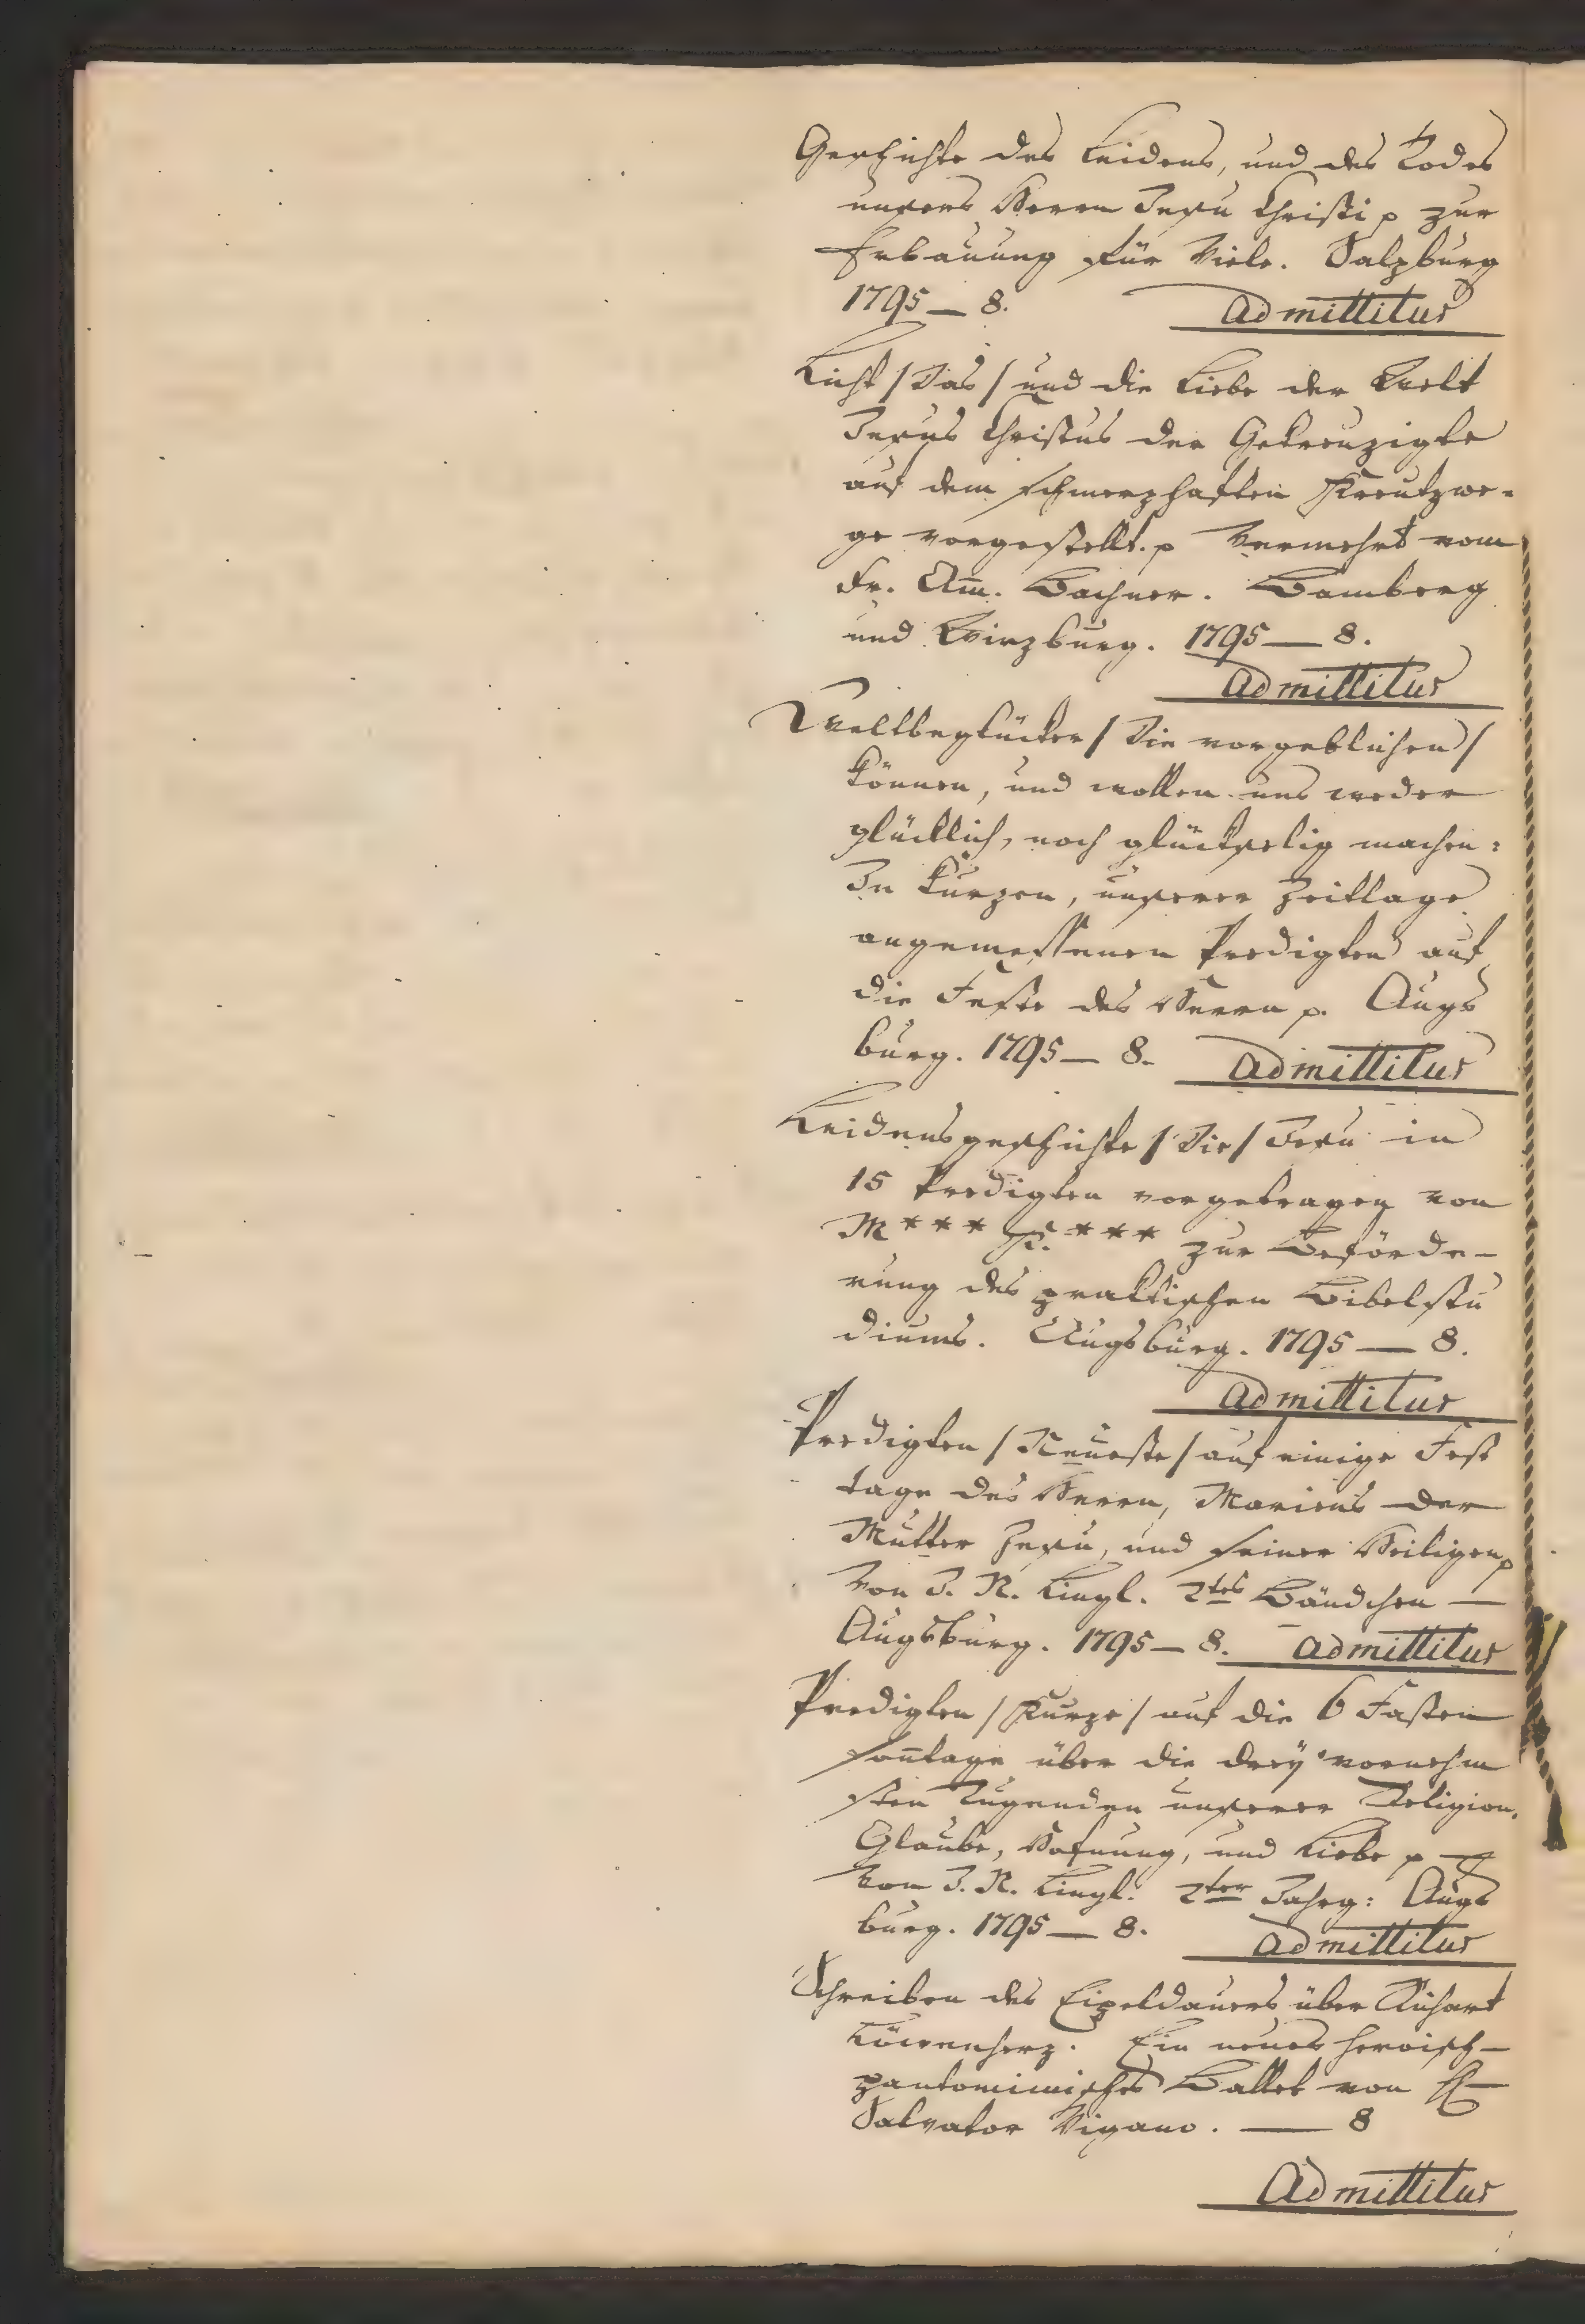 Geschichte des Leidens, und des Todes
unsers Herrn Jesu Christi p zur
Erbauung für Viele. Salzburg
1795 — 8. Admittitur
Licht / Das / und die Liebe der Welt
Jesus Christus der Gekreuzigte
auf dem schmerzhaften Kreutzwe-
ge vorgestellt. p Vermehrt vom
Fr. Am̄. Bachner. Bamberg
und Wirzburg. 1795 — 8.
Admittitur
Weltbeglücker / Die vorgeblichen /
können, und wollen uns weder
glücklich, noch glückselig machen:
In kurzen, unserer Zeitlage
angemessenen Predigten auf
die Feste des Herrn p. Augs
burg. 1795 — 8. Admittitur
Leidensgeschichte / Die / Jesu in
15 Predigten vorgetragen von
M*** K.*** zur Beförde-
rung des praktischen Bibelstu
diums. Augsburg. 1795 — 8.
Admittitur
Predigten / Neueste / auf einige Fest
tage des Herrn, Mariens der
Mutter Jesu, und seiner Heiligen p
Von J. N. Lingl. 2tes Bändchen —
Augsburg. 1795 — 8. Admittitur
Predigten / Kurze / auf die 6 Fasten
son̄tage über die drey vornehm
sten Tugenden unserer Religion.
Glaube, Hofnung, und Liebe p —
Von J. N. Lingl. 2ter Jahrg: Augs
burg. 1795 — 8. Admittitur
Schreiben des Eipeldauers über Richart
Löwenherz. Ein neues heroisch-
pantomimisches Ballet von H
Salvator Vigano. — 8
Admittitur